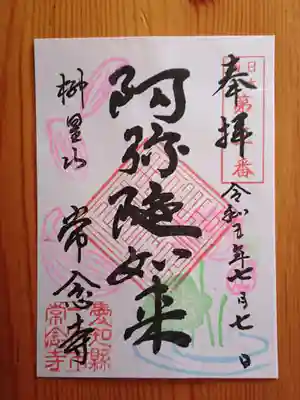 奉拝
第 番
令和五年七月七日
阿弥陀如来
柳星山
常念寺
愛知縣
常念寺